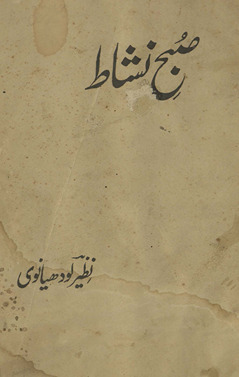 صُبحِ نشاط
نظیر لودھیانوی